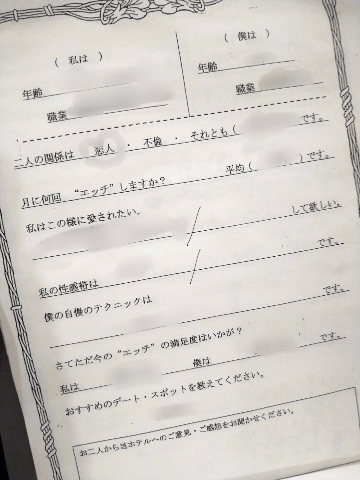 （ 私は ）
（ 僕は ）
年齢
年齢
職業
職業
二人の関係は 恋人 ・ 不倫 ・ それとも（ ）です。
月に何回 “エッチ”しますか？ 平均（ ）です。
私はこの様に愛されたい。
して欲しい。
私の性感帯は
です。
僕の自慢のテクニックは
です。
さてただ今の“エッチ”の満足度はいかが？
私は 僕は です。
おすすめのデート・スポットを教えてください。
お二人から当ホテルへのご意見・ご感想をお聞かせください。